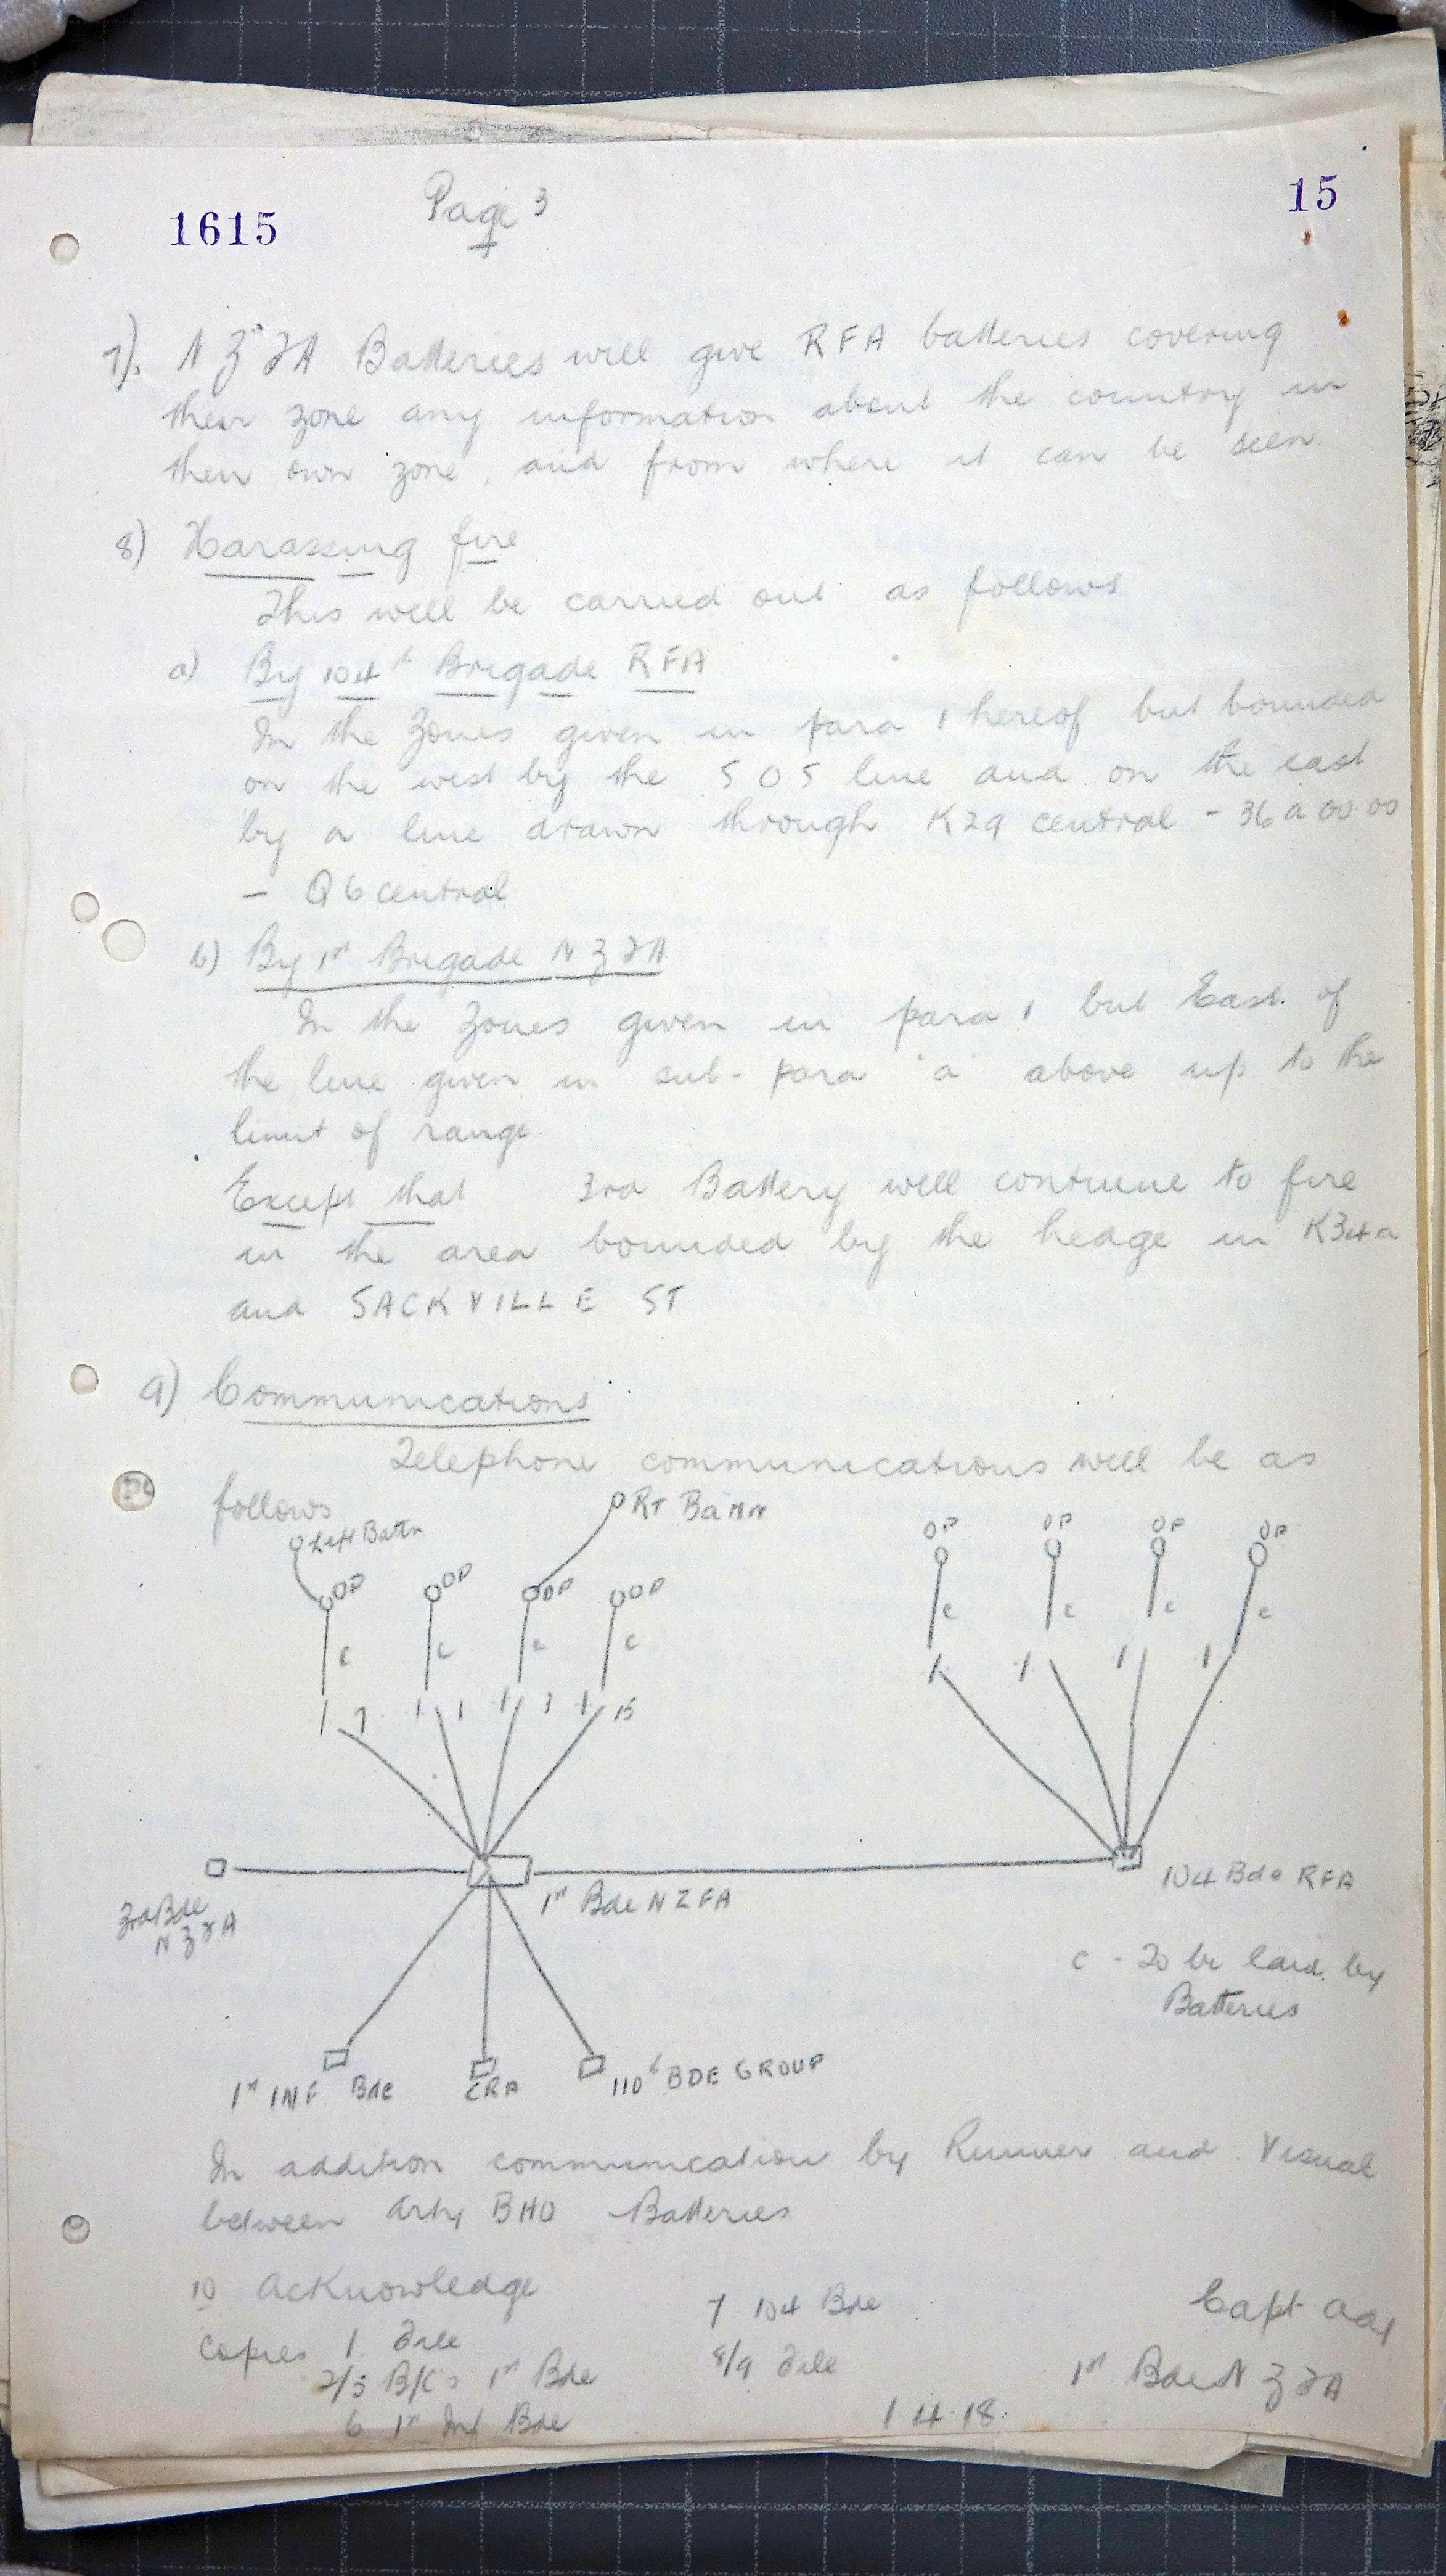 1615
Page 3
15
7). NZFA Batteries will give RFA batteries covering
their zone any information about the country in
their own zone, and from where it can be seen
8) Harassing fire
This will be carried out as follows
a) By 104th Brigade RFA
In the Zones given in para 1 hereof but bounded
on the west by the SOS line and on the east
by a line drawn through K29 central - 36 a 00.00
- Q6 central
b) By 1st Brigade NZFA
In the Zones given in para 1 but East of
the line given in sub-para "a" above up to the
limit of range.
Except that 3rd Battery will continue to fire
in the area bounded by the hedge in K34a
and SACKVILLE ST
9) Communications
Telephone communications will be as
follows
Left Battn
RT Battn
OP OP OP OP
OP OP OP OP
c c c c
c c c c
7 1 3 15
3rd Bde
NZFA
1st Bde NZFA
104 Bde RFA
c - To be laid by
Batteries
1st INF Bde
CRA
110th BDE GROUP
In addition communication by Runner and Visual
between Arty BHQ - Batteries
10 Acknowledge
Copies 1 File
2/5 B/C's 1st Bde
6 1st Inf Bde
7 104 Bde
8/9 File
Capt Adj
1st Bde NZFA
1.4.18.